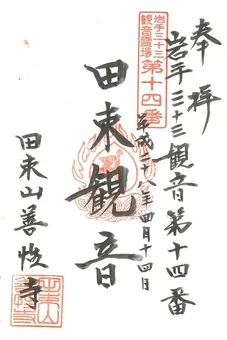 奉拝
岩手三十三観音第十四番
岩手三十三
観音霊場
第十四番
平成二十八年四月十四日
田束観音
田束山善悦寺